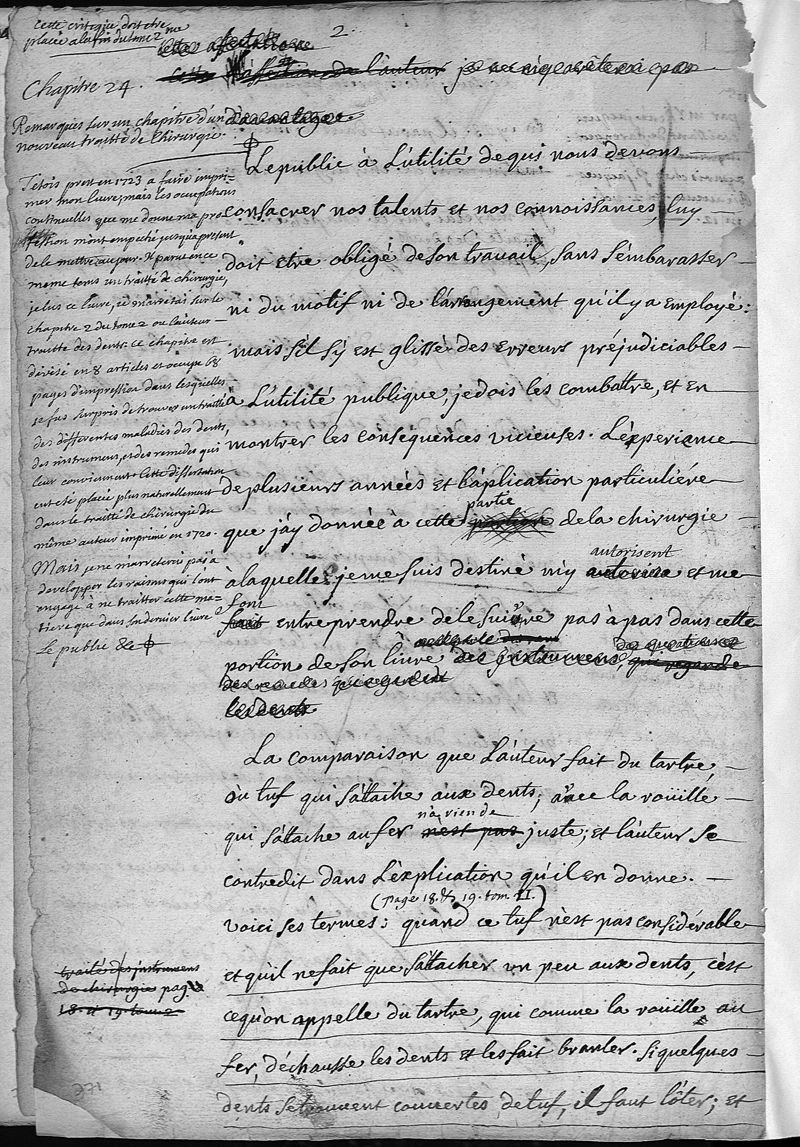 cette critique doit etre
placée a la fin du tome 2me
2.
Chapitre 24.
Remarques sur un chapitre d'un
nouveau traitté de Chirurgie.
J'etois prest en 1723 a faire impri-
mer mon livre, mais les ocupations
continuelles que me donne ma pro-
fession m'ont empeché jusqu'a present
de le mettre au jour. Il parut en ce
meme tems un traitté de chirurgie,
je lus ce livre, je m'arretai sur le
chapitre 2 du tome 2 ou l'auteur
traitte des dents. ce chapitre est
divisé en 8 articles et ocupe 68
pages d'impression dans lesquelles
je fus surpris de trouver un traitté
des differentes maladies des dents,
des instrumens, et des remedes qui
leur conviennent. Cette dissertation
eut eté placée plus naturellement
dans le traitté de chirurgie du
même auteur imprimé en 1720.
Mais je ne marreterai pas a
developper les raisons qui l'ont
engagé à ne traitter cette ma-
tiere que dans son dernier livre
Le public &c ϕ
cette affectation de l'auteur je
davantage
ϕ
Le public à L'utilité de qui nous devons
consacrer nos talents et nos connoissances, luy
doit etre obligé de son travail, sans s'embarasser
ni du motif ni de l'arrangement qu'il y a employé:
mais s'il s'y est glissé des erreurs préjudiciables
à L'utilité publique, je dois les combattre, et en
montrer les conséquences vicieuses. L'éxperiance
de plusieurs années et l'aplication particuliére
partie
que j'ay donnée à cette portion de la chirurgie
autorisent
à laquelle je me suis destiné m'y autorise et me
font
fait entreprendre de le suivre pas à pas dans cette
portion de son livre des instrumens, qui regarde
des remedes qui regardent
les dents
La comparaison que L'auteur fait du tartre,
ou tuf qui s'attache aux dents, avec la roüille
n'a rien de
qui s'attache au fer n'est pas juste; et l'auteur se
contredit dans L'explication qu'il en donne.
(page 18. & 19. tom. II.)
voici ses termes: quand ce tuf n'est pas considérable
et qu'il ne fait que s'attacher un peu aux dents, c'est
traité des instrumens
de chirurgie pag.
18. et 19. tom 2
ce qu'on appelle du tartre, qui comme la roüille au
fer, déchausse les dents et les fait branler. si quelques
dents se trouvent couvertes de tuf, il faut l'ôter; et
371